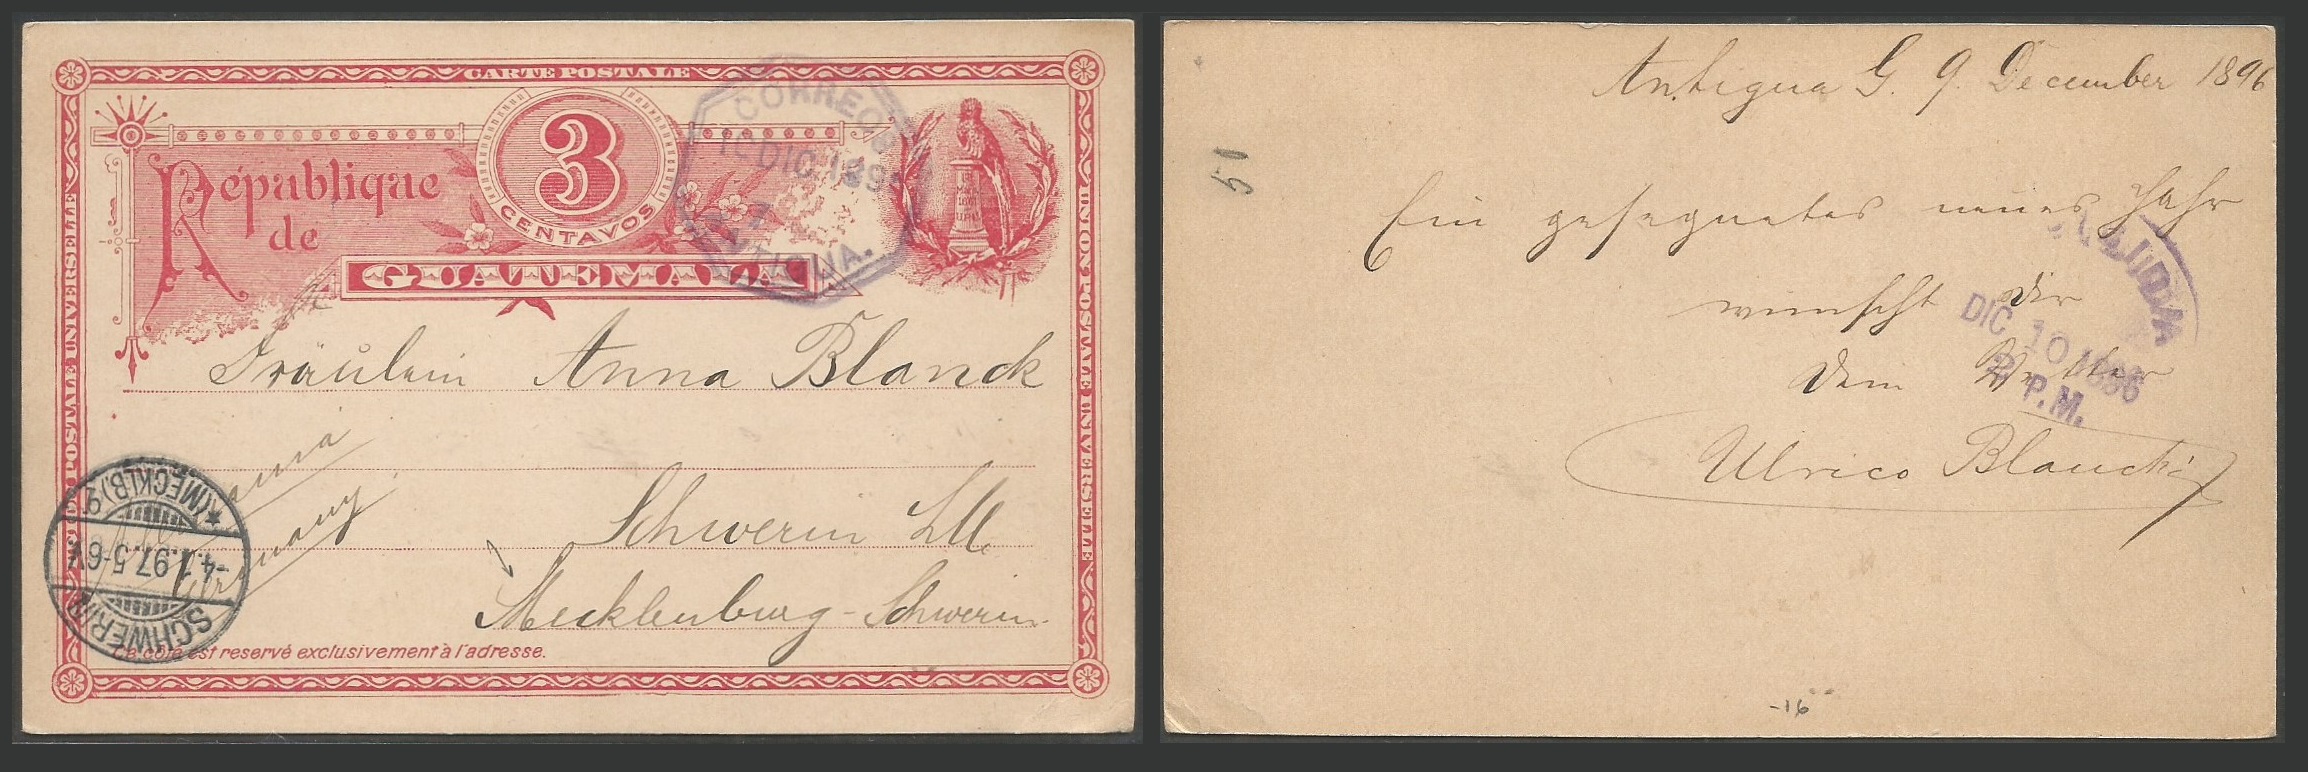 CARTE POSTALE
UNION POSTALE UNIVERSELLE
UNION POSTALE UNIVERSELLE
République
de
GUATEMALA
3
CENTAVOS
CORREOS
10 DIC 189
ANTIGUA.
Fräulein Anna Blanck
Schwerin i/M
Mecklenburg-Schwerin
Germany
SCHWERIN
-4.1.97.5-6V.
*(MECKLB.)
Ce côté est reservé exclusivement à l'adresse.
Antigua G. 9. December 1896
51
Ein gesegnetes neues Jahr
wünscht dir
Dein Vetter
Ulrico Blanck
DIC 10 1896
2 P.M.
-16